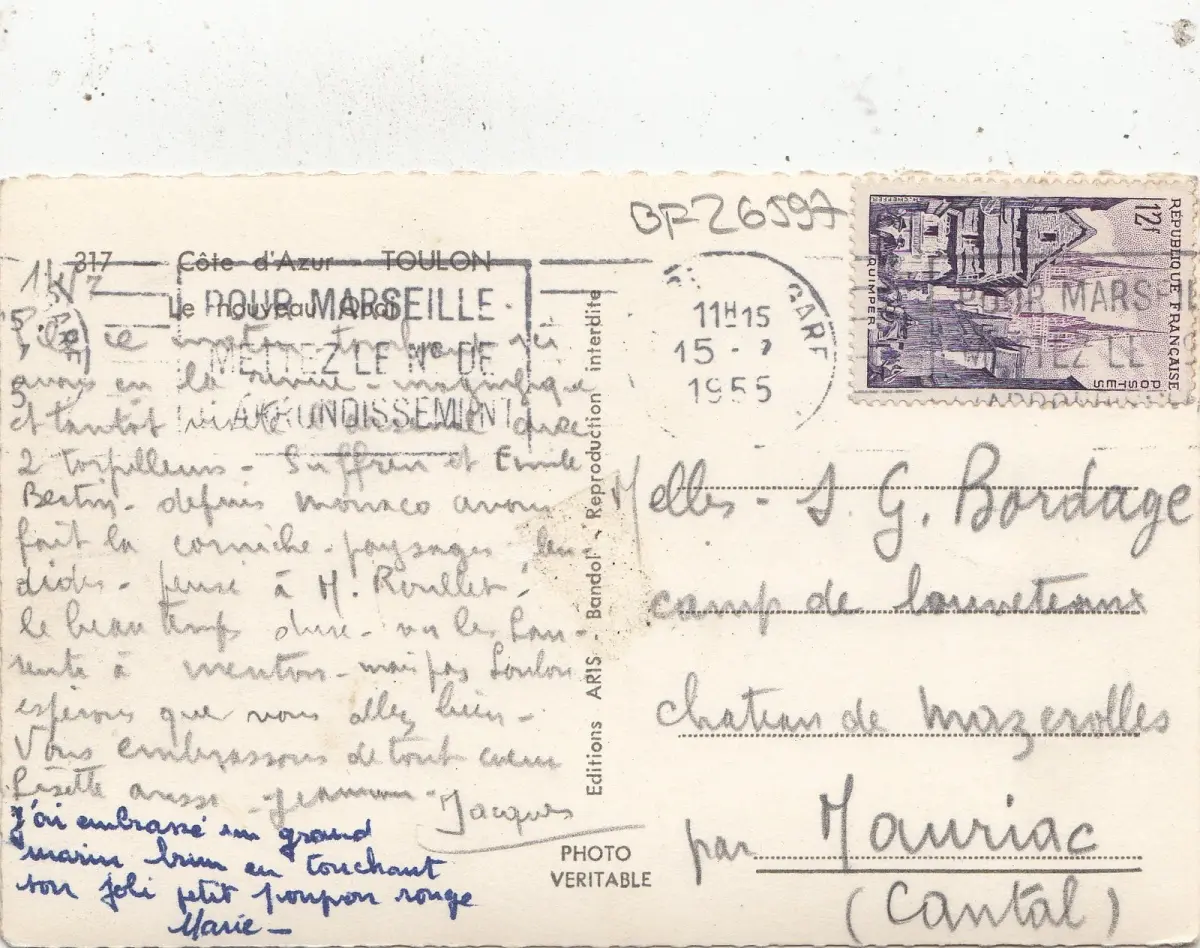 BF26597
317 Côte d'Azur TOULON
Le nouveau Quai
POUR MARSEILLE
METTEZ LE N° DE
ARRONDISSEMENT
GARE
11H15
15 - 7
1955
RÉPUBLIQUE FRANÇAISE
12f
POSTES
QUIMPER
POUR MARSEI
METTEZ LE
14/7
ce
avons en la revue - magnifique
et tantôt visité
2 torpilleurs - Suffren et Emile
Bertin - depuis monaco avons
fait la corniche - paysages
- pensé à M. Roullet.
le beau temps dure - vu les
à menton - mais pas
espérons que vous allez bien -
Vous embrassons de tout coeur
Lisette aussi -
Jacques
J'ai embrassé un grand
marin brun en touchant
son joli petit pompon rouge
Marie -
Editions ARIS - Bandol - Reproduction interdite
PHOTO
VERITABLE
Melles - J. G. Bordage
camp de louveteaux
chateau de Mazerolles
par Mauriac
(Cantal)